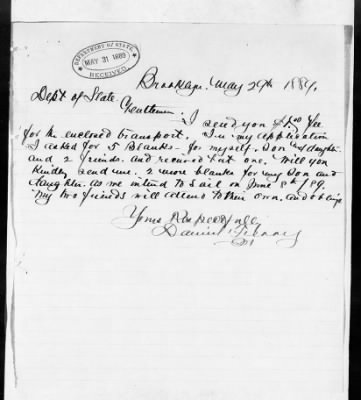 DEPARTMENT OF STATE,
MAY 31 1889
RECEIVED
Brooklyn, May 29th 1889.
Dept of State
Gentlemen: I send you $1.00 fee
for the enclosed transport. In my application
I asked for 5 Blanks- for myself, Son and daughter
and 2 friends. and received but one. Will you
Kindly send me. 2 more blanks for my Son and
daughter. as we intend to Sail on June 8th/89.
My two friends will attend to their own. and oblige
Yours Respectfully
Daniel